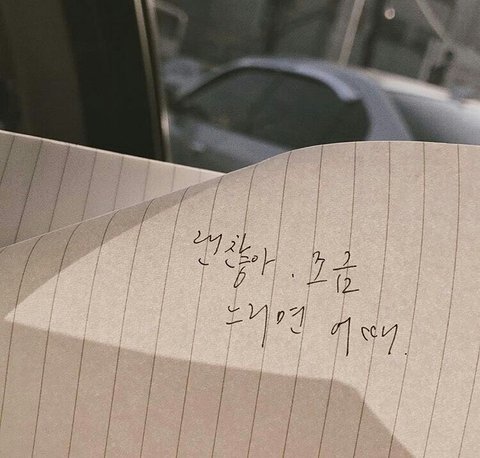 괜찮아. 조금
느리면 어때.